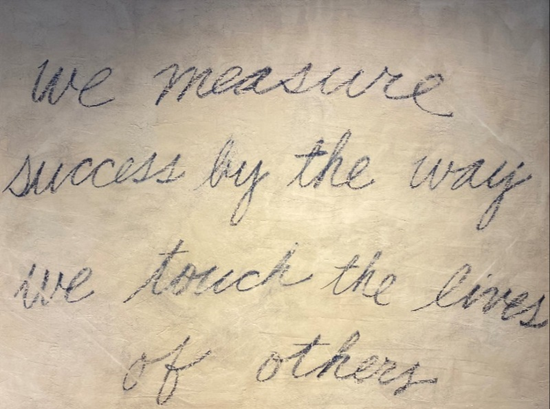 we measure
success by the way
we touch the lives
of others